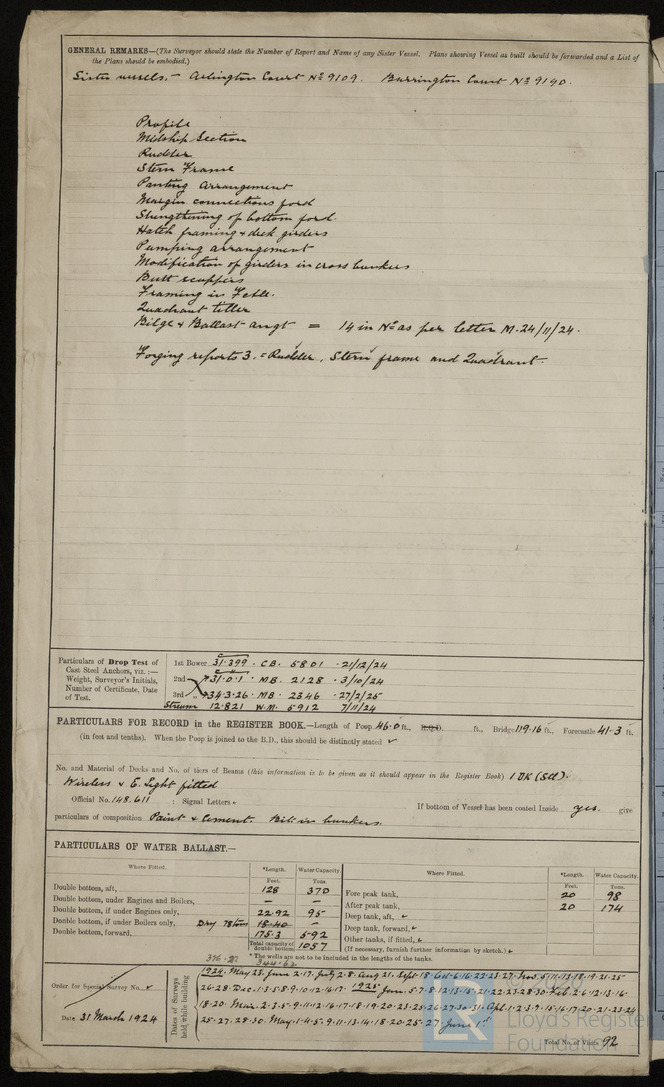 GENERAL REMARKS—(The Surveyor should state the Number of Report and Name of any Sister Vessel. Plans showing Vessel as built should be forwarded and a List of
the Plans should be embodied.)
Sister vessels. — Arlington Court Nº 9109. Barrington Court Nº 9190.
Profile
Midship Section
Rudder
Stern Frame
Panting Arrangement
Margin connections ford
Strengthening of bottom ford.
Hatch framing & deck girders
Pumping arrangement
Modification of girders in cross bunkers
Butt scuppers
Framing in Fchle.
Quadrant tiller
Bilge & Ballast angt = 14 in Nº as per letter M. 24/11/24.
Forging reports 3. = Rudder, Stern frame and Quadrant.
Particulars of Drop Test of
Cast Steel Anchors, viz.:—
Weight, Surveyor's Initials,
Number of Certificate, Date
of Test.
1st Bower 31.3.99. C.B. 5801 . 21/12/24
2nd " 31.0.1 . M.B. 2128 . 3/10/24
3rd " 34.3.26 . M.B. 2346 . 27/2/25
Stream 12.821 W.M. 5912 7/11/24
PARTICULARS FOR RECORD in the REGISTER BOOK.—Length of Poop 46.0 ft., R.Q.D. ft., Bridge 119.16 ft., Forecastle 41.3 ft.
(in feet and tenths). When the Poop is joined to the B.D., this should be distinctly stated
No. and Material of Decks and No. of tiers of Beams (this information is to be given as it should appear in the Register Book) 1 DK (Stl).
Wireless & E. Light fitted
Official No. 148.611 : Signal Letters If bottom of Vessel has been coated Inside yes. give
particulars of composition Paint & Cement. Bit. in bunkers.
PARTICULARS OF WATER BALLAST.—
Where Fitted. *Length. Water Capacity Where Fitted. *Length. Water Capacity.
Feet. Tons. Feet. Tons.
Double bottom, aft, 128 370 Fore peak tank, 20 98
Double bottom, under Engines and Boilers, — — After peak tank, 20 174
Double bottom, if under Engines only, 22.92 95 Deep tank, aft,
Double bottom, if under Boilers only, Dry 78 tons 18.40 — Deep tank, forward,
Double bottom, forward, 175.3 592 Other tanks, if fitted,
Total capacity of double bottom 1057 (If necessary, furnish further information by sketch.)
344.62 * The wells are not to be included in the lengths of the tanks.
Order for Special Survey No.
Date 31 March 1924
Dates of Surveys
held while building
1924. May 23. June 2.17. July 2.8. Aug 21. Sept 18. Oct. 6.16.22.23.27. Nov. 5.11.13.18.19.21.25
26.28. Dec. 1.3.5.8.9.10.12.16.17. 1925 Jan. 5.7.8.12.13.15.21.22.23.28.30. Feb. 2.6.12.13.16.
18.20. Mar. 2.3.5.9.11.12.16.17.18.19.20.23.25.26.27.30.31. Apl. 1.2.3.9.15.16.17.20.21.23.24
25.27.28.30. May. 1.4.5.9.11.13.14.18.20.25.27. June 1st
Total No. of Visits 92
Lloyd's Register
Foundation